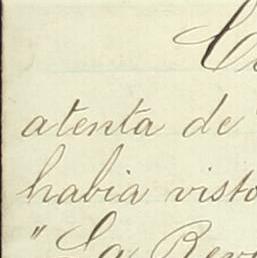 atenta de
habia visto
"La Rev